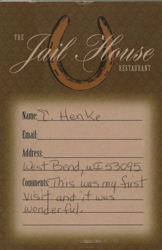 THE
Jail House
RESTAURANT
Name: T. Henke
Email:
Address:
West Bend, WI 53095
Comments: This was my first
visit and it was
wonderful.